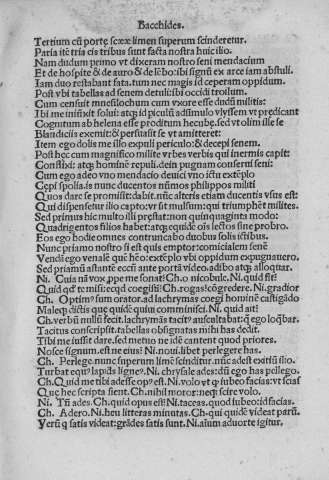 Bacchides.
Tertium cū portę scęæ limen superum scinderetur.
Paria itē tria eis tribus sunt facta nostra huic ilio.
Nam dudum primo vt dixeram nostro seni mendacium
Et de hospite & de auro & de lēbo: ibi signū ex arce iam abstuli.
Iam duo restabant fata. tum nec magis id ceperam oppidum.
Post vbi tabellas ad senem detuli: ibi occidi troilum.
Cum censuit mnesilochum cum vxore esse dudū militis:
Ibi me inuixit solui: atq; id piculū adsimulo vlyssem vt prędicant
Cognitum ab helena esse proditum hecubę. sed vt olim ille se
Blandiciis exemit: & persuasit se vt amitteret:
Item ego dolis me illo expuli periculo: & decepi senem.
Post hęc cum magnifico milite vrbes verbis qui inermis capit:
Conflixi: atq; hominē repuli. dein pugnam conserui seni:
Cum ego adeo vno mendacio deuici vno ictu extēplo
Cępi spolia. is nunc ducentos nūmos philippos militi
Quos dare se promisit: dabit. nūc alteris etiam ducentis vsus est:
Qui dispensetur ilio capto: vt sit mulsum: qui triumphēt milites.
Sed primus hic multo illi pręstat: non quinquaginta modo:
Quadrigentos filios habet: atq; equidē oīs lectos sine probro.
Eos ego hodie omnes contruncabo duobus solis ictibus.
Nunc priamo nostro si est quis emptor: comicialem senē
Vendā ego venalē quē hēo: extēplo vbi oppidum expugnauero.
Sed priamū astantē eccū ante portā video. adibo atq; alloquar.
Ni. Cuia nā vox ꝓpe me sonat: Ch. o nicobule. Ni. quid fit?
Quid qđ te misi ecqd coegisti: Ch. rogas: cōgredere. Ni. gradior
Ch. Optim⁹ sum orator. ad lachrymas coegi hominē castigādo
Maleq; dictis quę quidē quiui comminisci. Ni. quid ait:
Ch. verbū nullū fecit. lachrymās tacit⁹ auscultabat: q̄ ego loq̄bar.
Tacitus conscripsit. tabellas obsignatas m̄ibi has dedit.
Tibi me iussit dare. sed metuo ne idē cantent quod priores.
Nosce signum. est ne eius: Ni. noui. libet perlegere has.
Ch. Perlege. nunc superum limē scinditur. nūc adest exitiū ilio.
Turbat equ⁹ lapid⁹ ligne⁹. Ni. chrysale ades: dū ego has pellego.
Ch. Quid me tibi adesse op⁹ est. Ni. volo vt q̄ iubeo facias: vt scias
Que hęc scripta sient. Ch. nihil moror: neq; scire volo.
Ni. Tn̄ ades. Ch. quid opus est: Ni. taceas. quod iubeo: id facias.
Ch. Adero. Ni. heu litteras minutas. Ch. qui quidē videat parū.
Verū q̄ satis videat: grādes satis sunt. Ni. aīum aduorte igitur.